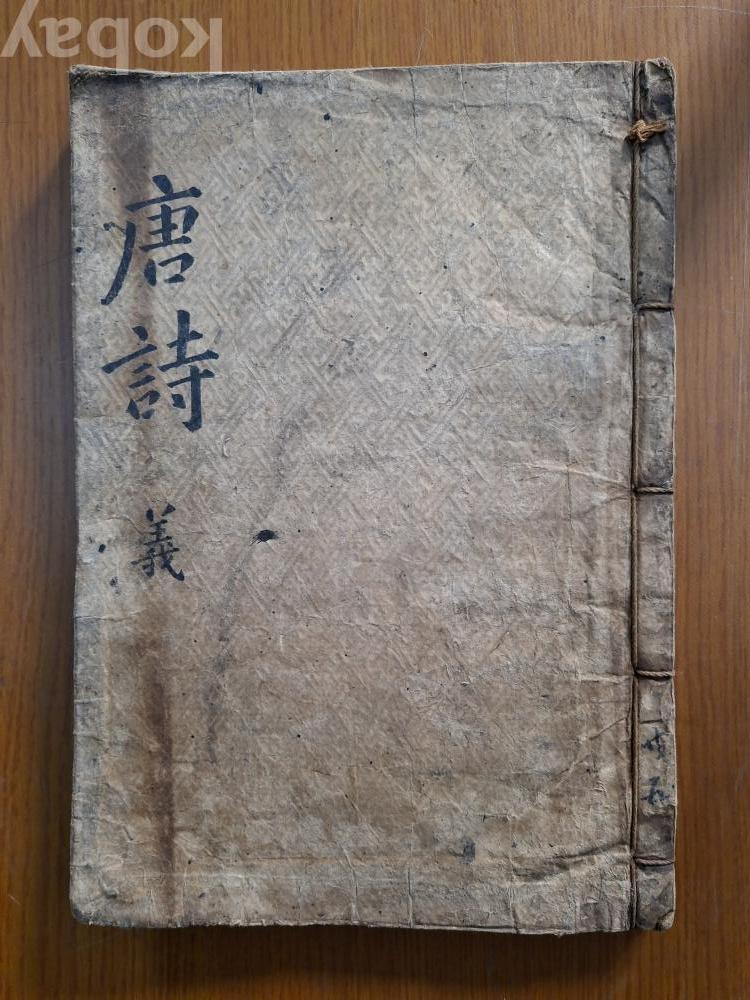 kobay
唐詩
義
共五